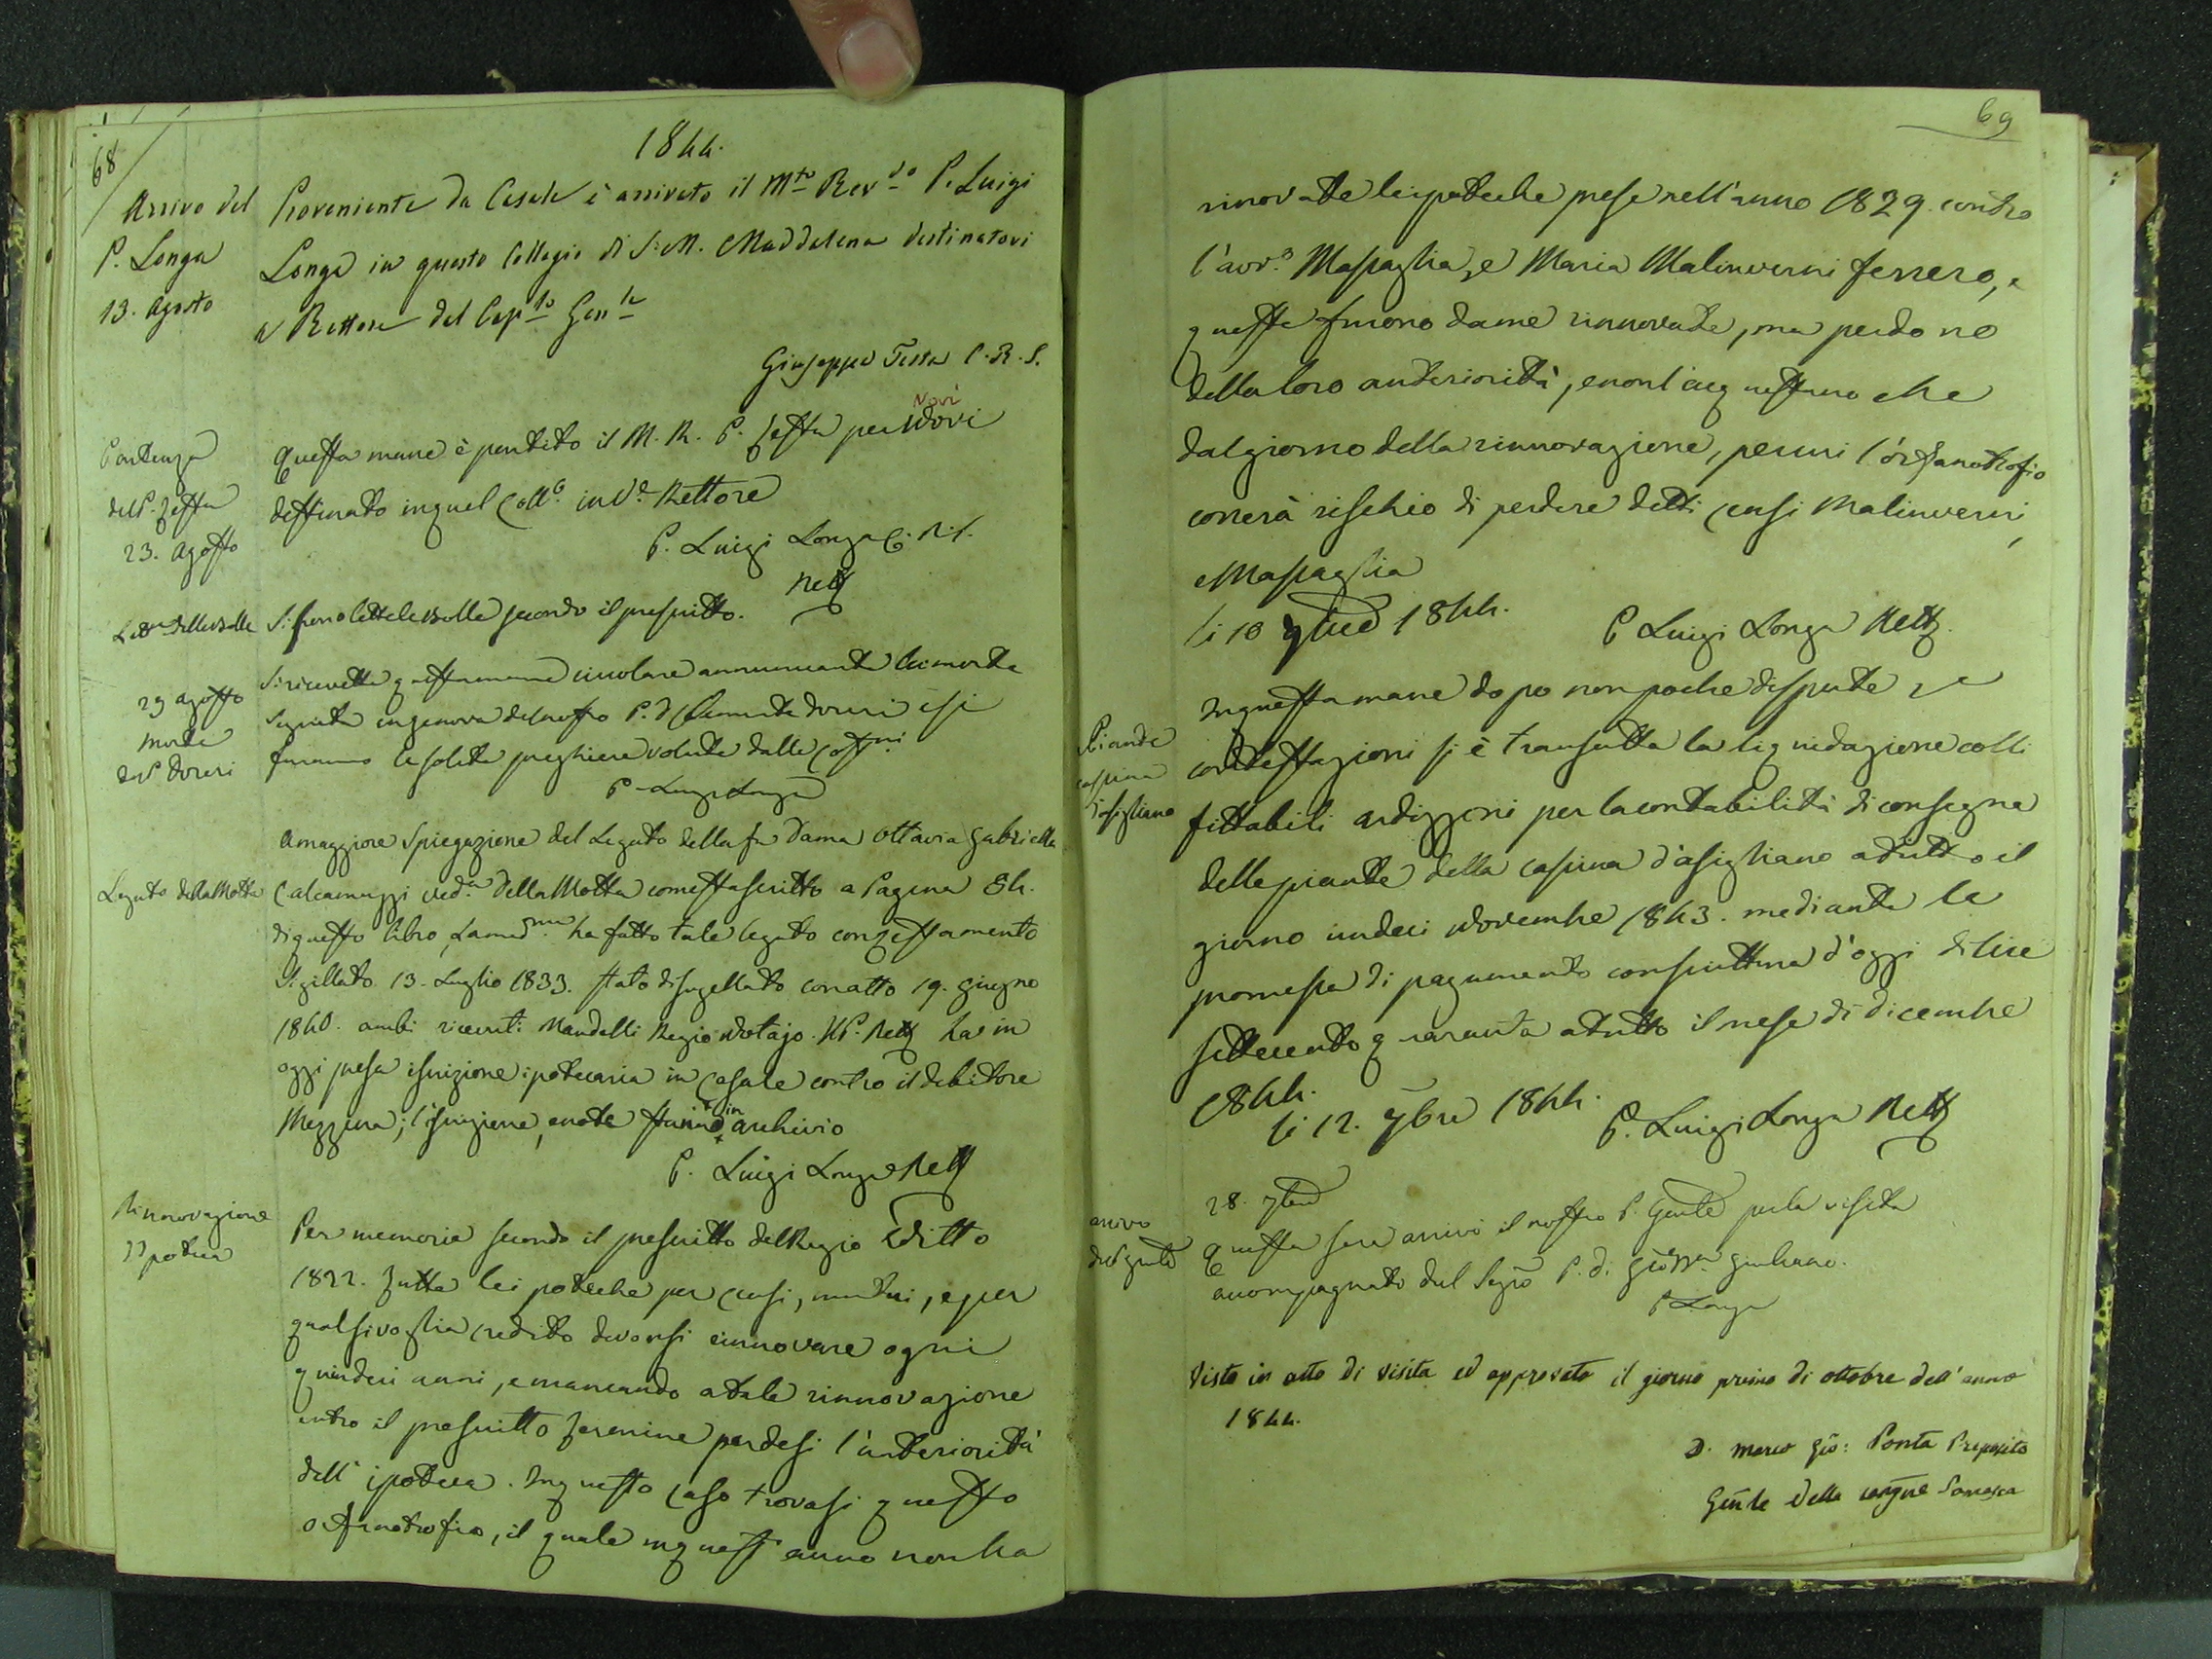 68
1844.
Arrivo del
P. Longa
13. Agosto
Proveniente da Casale è arrivato il M.to Rev.do P. Luigi
Longa in questo Collegio di S. M. Maddalena destinatovi
a Rettore dal Cap.lo Gen.le
Giuseppe Testa C.R.S.
Partenza
del P. Testa
23. Agosto
Novi
Questa mane è partito il M. R. P. Testa per Novi
destinato in quel Coll.o in V.e Rettore
P. Luigi Longa C.R.S.
Rett
Let.ra delle bolle
Si sono lette le bolle secondo il prescritto.
29 Agosto
Morte
del P. Doreri
Si ricevette questa mane circolare annunciante la morte
seguita in genova del nostro P. D. Clemente Doreri e si
faranno le solite preghiere volute dalle Cost.ni
P. Luigi Longa
Legato della Motta
A maggiore Spiegazione del Legato della fu Dama Ottavia Gabriella
Calcamuggi ved.a Della Motta come sta scritto a Pagina 84.
di questo libro, La med.ma ha fatto tale legato con testamento
Sigillato 13. Luglio 1833. stato disugellato con atto 19. giugno
1840. ambi ricevuti Mandelli Regio Notajo. Il P. Rett ha in
oggi presa iscrizione ipotecaria in Casale contro il debitore
Mezzena; l'iscrizione, e note stanno in archivio
P. Luigi Longa Rett
Rinnovazione
Ipoteca
Per memoria secondo il prescritto del Regio Editto
1822. Tutte le ipoteche per censi, mutui, e per
qualsivoglia credito devonsi rinnovare ogni
quindici anni, e mancando a tale rinnovazione
entro il prescritto termine perdesi l'anteriorità
dell'ipoteca. In questo caso trovasi questo
orfanotrofio, il quale in quest'anno non ha
69
rinovate le ipoteche prese nell'anno 1829. contro
l'avv.o Maspaglia, e Maria Malinverni ferrero, e
queste furono da me rinnovate, ma perdono
della loro anteriorità, e non l'acquistano che
dal giorno della rinnovazione, per cui l'orfanotrofio
correrà rischio di perdere detti censi Malinverni,
e Maspaglia
li 10 7bre 1844.
P. Luigi Longa Rett.
Piante
cassina
d'asigliano
In questa mane dopo non poche dispute, e
contestazioni si è transatta la liquidazione colli
fittabili ardizzoni per la contabilità di consegna
delle piante della cassina d'asigliano a tutto il
giorno undeci Novembre 1843. mediante la
promessa di pagamento con scrittura d'oggi di lire
settecento quaranta a tutto il mese di dicembre
1844.
li 12. 7bre 1844.
P. Luigi Longa Rett
28. 7bre
arrivo
del P. Gnle
Questa sera arrivò il nostro P. Gnle per la visita
accompagnato dal Segrio P. D. Giuliano.
P. Longa
Visto in atto di visita ed approvato il giorno primo di ottobre dell'anno
1844.
D. Marco Gio: Ponta Preposito
Gnle della congne Somasca